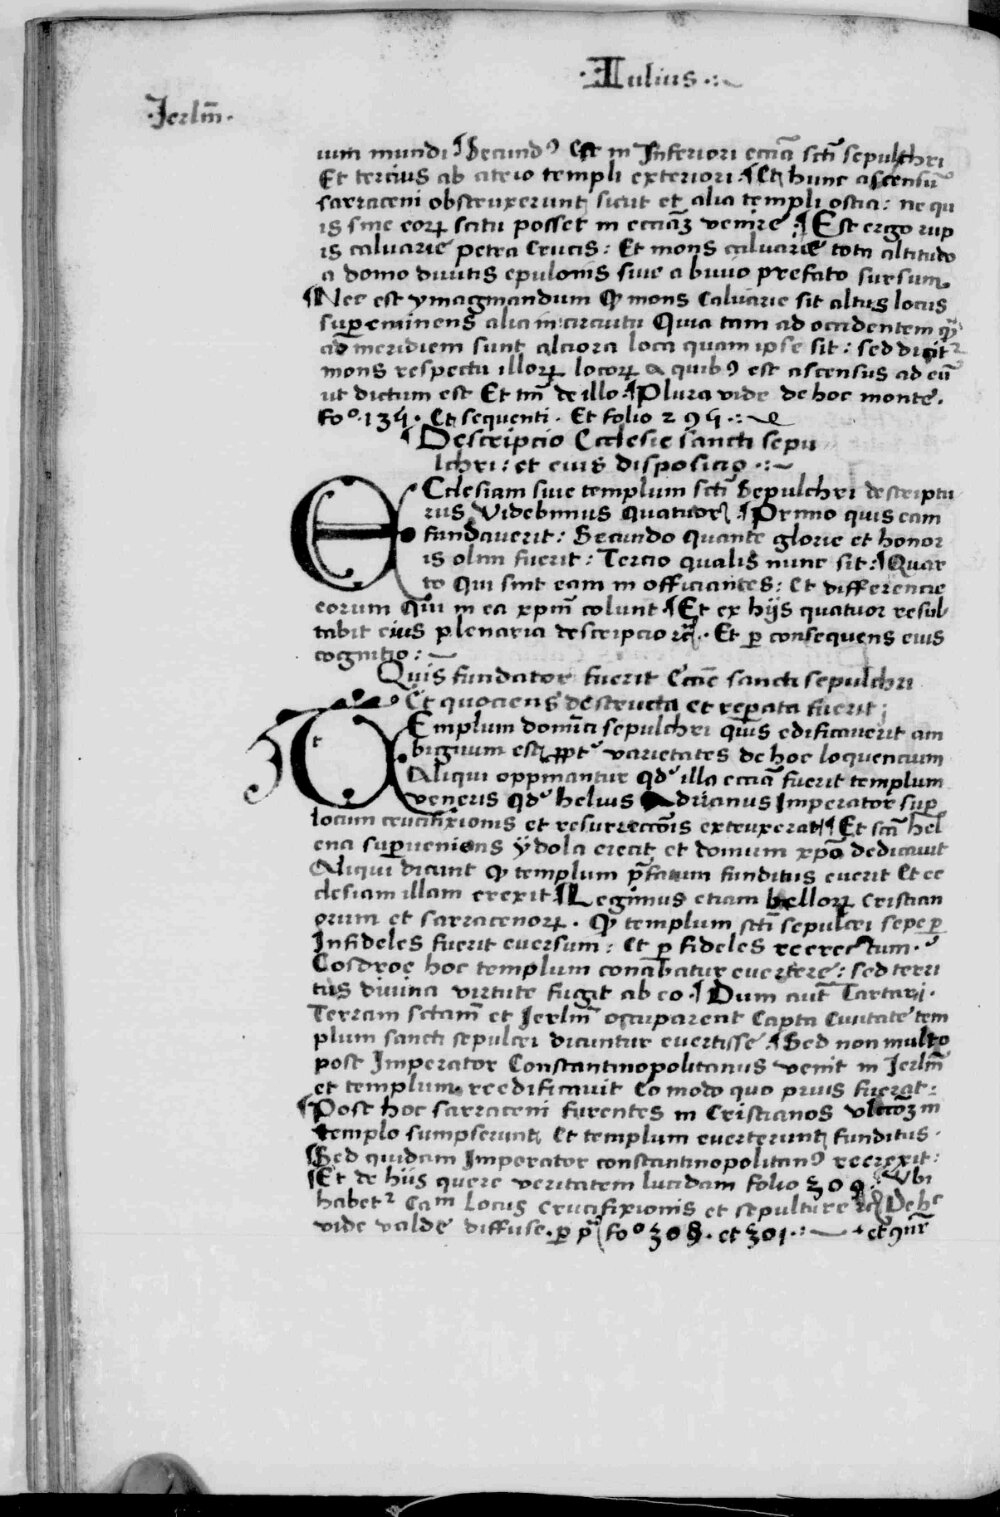 ·Iulius·:~
·Jerlm̄·
ium mundi ¶Secundꝰ Est in Inferiori eccīa scti̅ sepulchri
Et tercius ab atrio templi exteriori: ¶Et hunc ascensū
sarraceni obstruxerunt sicut et alia templi ostia: ne qu
is sine eoꝝ scitu posset in eccīaꝫ venire ¶Est ergo rup
is calvarie petra Crucis: Et mons calvarie tota altitudo
a domo divitis epulonis sive a bivio prefato sursum.
¶Nec est ymaginandum ꝙ mons Calvarie sit altus locus
suꝑeminens alia in circuitu Quia tam ad occidentem qꝫ̄
ad meridiem sunt alciora loca quam ipse sit: sed dicit᷑
mons respectu illoꝝ locoꝝ a quibꝰ est ascensus ad eū
ut dictum est Et tm̄ de illo ¶Plura vide de hoc monte.
fo°·135· Et sequenti · Et folio 295·:~
¶Descripcio Ecclesie sancti sepu
lchri: et eius disposicio·:~
ECclesiam sive templum scti̅ Sepulchri descriptu
rus Videbimus quatuor ¶Primo quis eam
fundaverit: Secundo quante glorie et honor
is olim fuerit: Tercio qualis nunc sit: ¶Quar
to Qui sint eam in officiantes: Et differencie
eorum Qui in ea xp̄m colunt ¶Et ex hijs quatuor resul
tabit eius plenaria descripcio ·Et ꝑ consequens eius
cognitio:~
Quis fundator fuerit Eccīe sancti sepulchri
Et quociens destructa et reꝑata fuerit;
TEmplum domīci sepulchri quis edificaverit am
biguum est varietates de hoc loquencium
Aliqui oppinantur qd᷑ illa eccīa fuerit templum
veneris qd᷑ helius Adrianus Imperator suꝑ
locum crucifixionis et resurreccōis extruxerat ¶Et scā hel
ena suꝑveniens ÿdola eiecit et domum xp̄o dedicavit
Aliqui dicunt ꝙ templum p̄fatum funditus everit Et ec
clesiam illam erexit ¶Legimus etiam belloꝝ Cristian
orum et sarracenoꝝ · ꝙ templum scti̅ sepulcri sepe ꝑ
Infideles fuerit eversum: Et ꝑ fideles reerectum·
Cosdroe hoc templum conabatur evertere: sed terri
tus divina virtute fugit ab eo ·¶Dum aut̄ Tartari·
Terram sctam̄ et Jerlm̄ occuparent Capta Civitate tem
plum sancti sepulcri dicuntur evertisse ¶Sed non multo
post Imperator Constantinopolitanus venit in Jerlm̄
et templum reedificavit Eo modo quo prius fuerat:
¶Post hoc sarraceni furentes in Cristianos in
templo sumpserunt Et templum everterunt funditus·
¶Sed quidam Imperator constantinopolitanꝰ reerexit:
¶Et de hijs quere veritatem lucidam folio 309: Ubi
habet᷑ Locus Crucifixionis et sepulture De hc
vide valde diffuse· fo° 308· et 301·:~